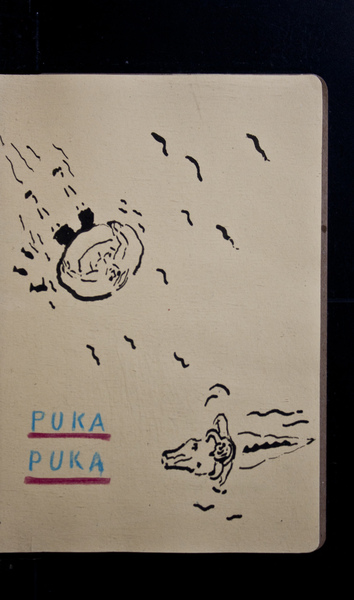 PUKA
PUKA